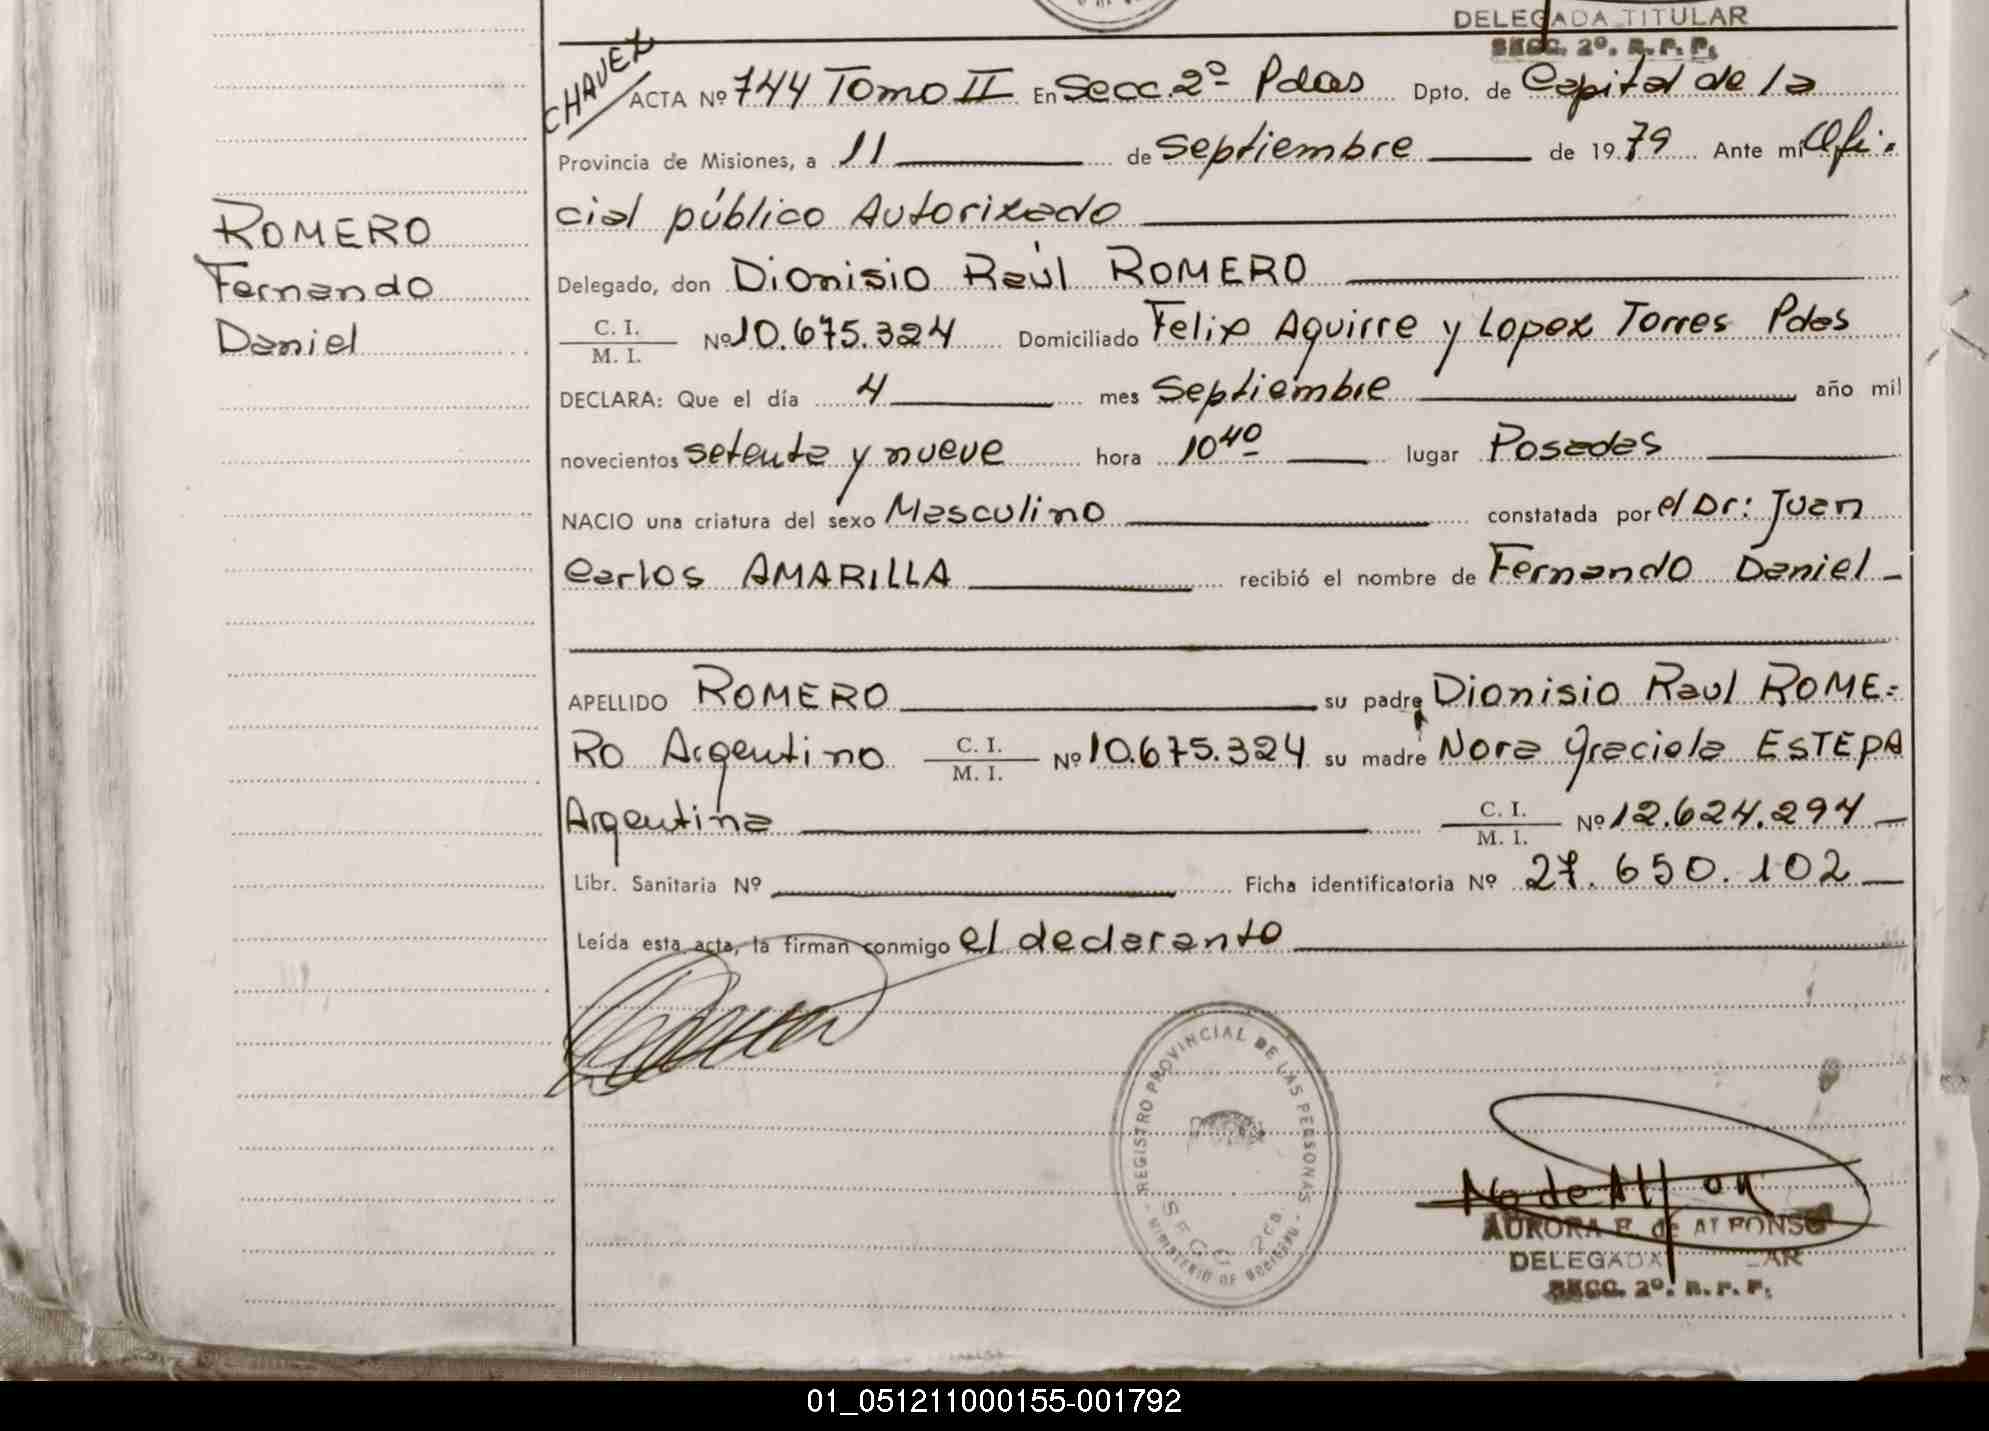 DELEGADA TITULAR
SECC. 2º. R. P. P.
CHAVEZ
ACTA Nº 744 Tomo II En Secc. 2º Pdas Dpto. de Capital de la
Provincia de Misiones, a 11 de Septiembre de 1979 Ante mi Ofi-
cial público Autorizado
ROMERO
Fernando
Daniel
Delegado, don Dionisio Raúl ROMERO
C. I.
M. I. Nº 10.675.324 Domiciliado Felix Aguirre y Lopez Torres Pdas
DECLARA: Que el día 4 mes Septiembre año mil
novecientos setenta y nueve hora 10 40 lugar Posadas
NACIO una criatura del sexo Masculino constatada por el Dr: Juan
Carlos AMARILLA recibió el nombre de Fernando Daniel
APELLIDO ROMERO su padre Dionisio Raul ROME=
RO Argentino C. I. M. I. Nº 10.675.324 su madre Nora Graciela ESTEPA
Argentina C. I. M. I. Nº 12.624.294
Libr. Sanitaria Nº Ficha identificatoria Nº 27.650.102
Leída esta acta, la firman conmigo el declarante
REGISTRO PROVINCIAL DE LAS PERSONAS
MINISTERIO DE GOBIERNO
SECC. 2da.
AURORA E. de ALFONSO
DELEGADA TITULAR
SECC. 2º. R. P. P.
01_051211000155-001792